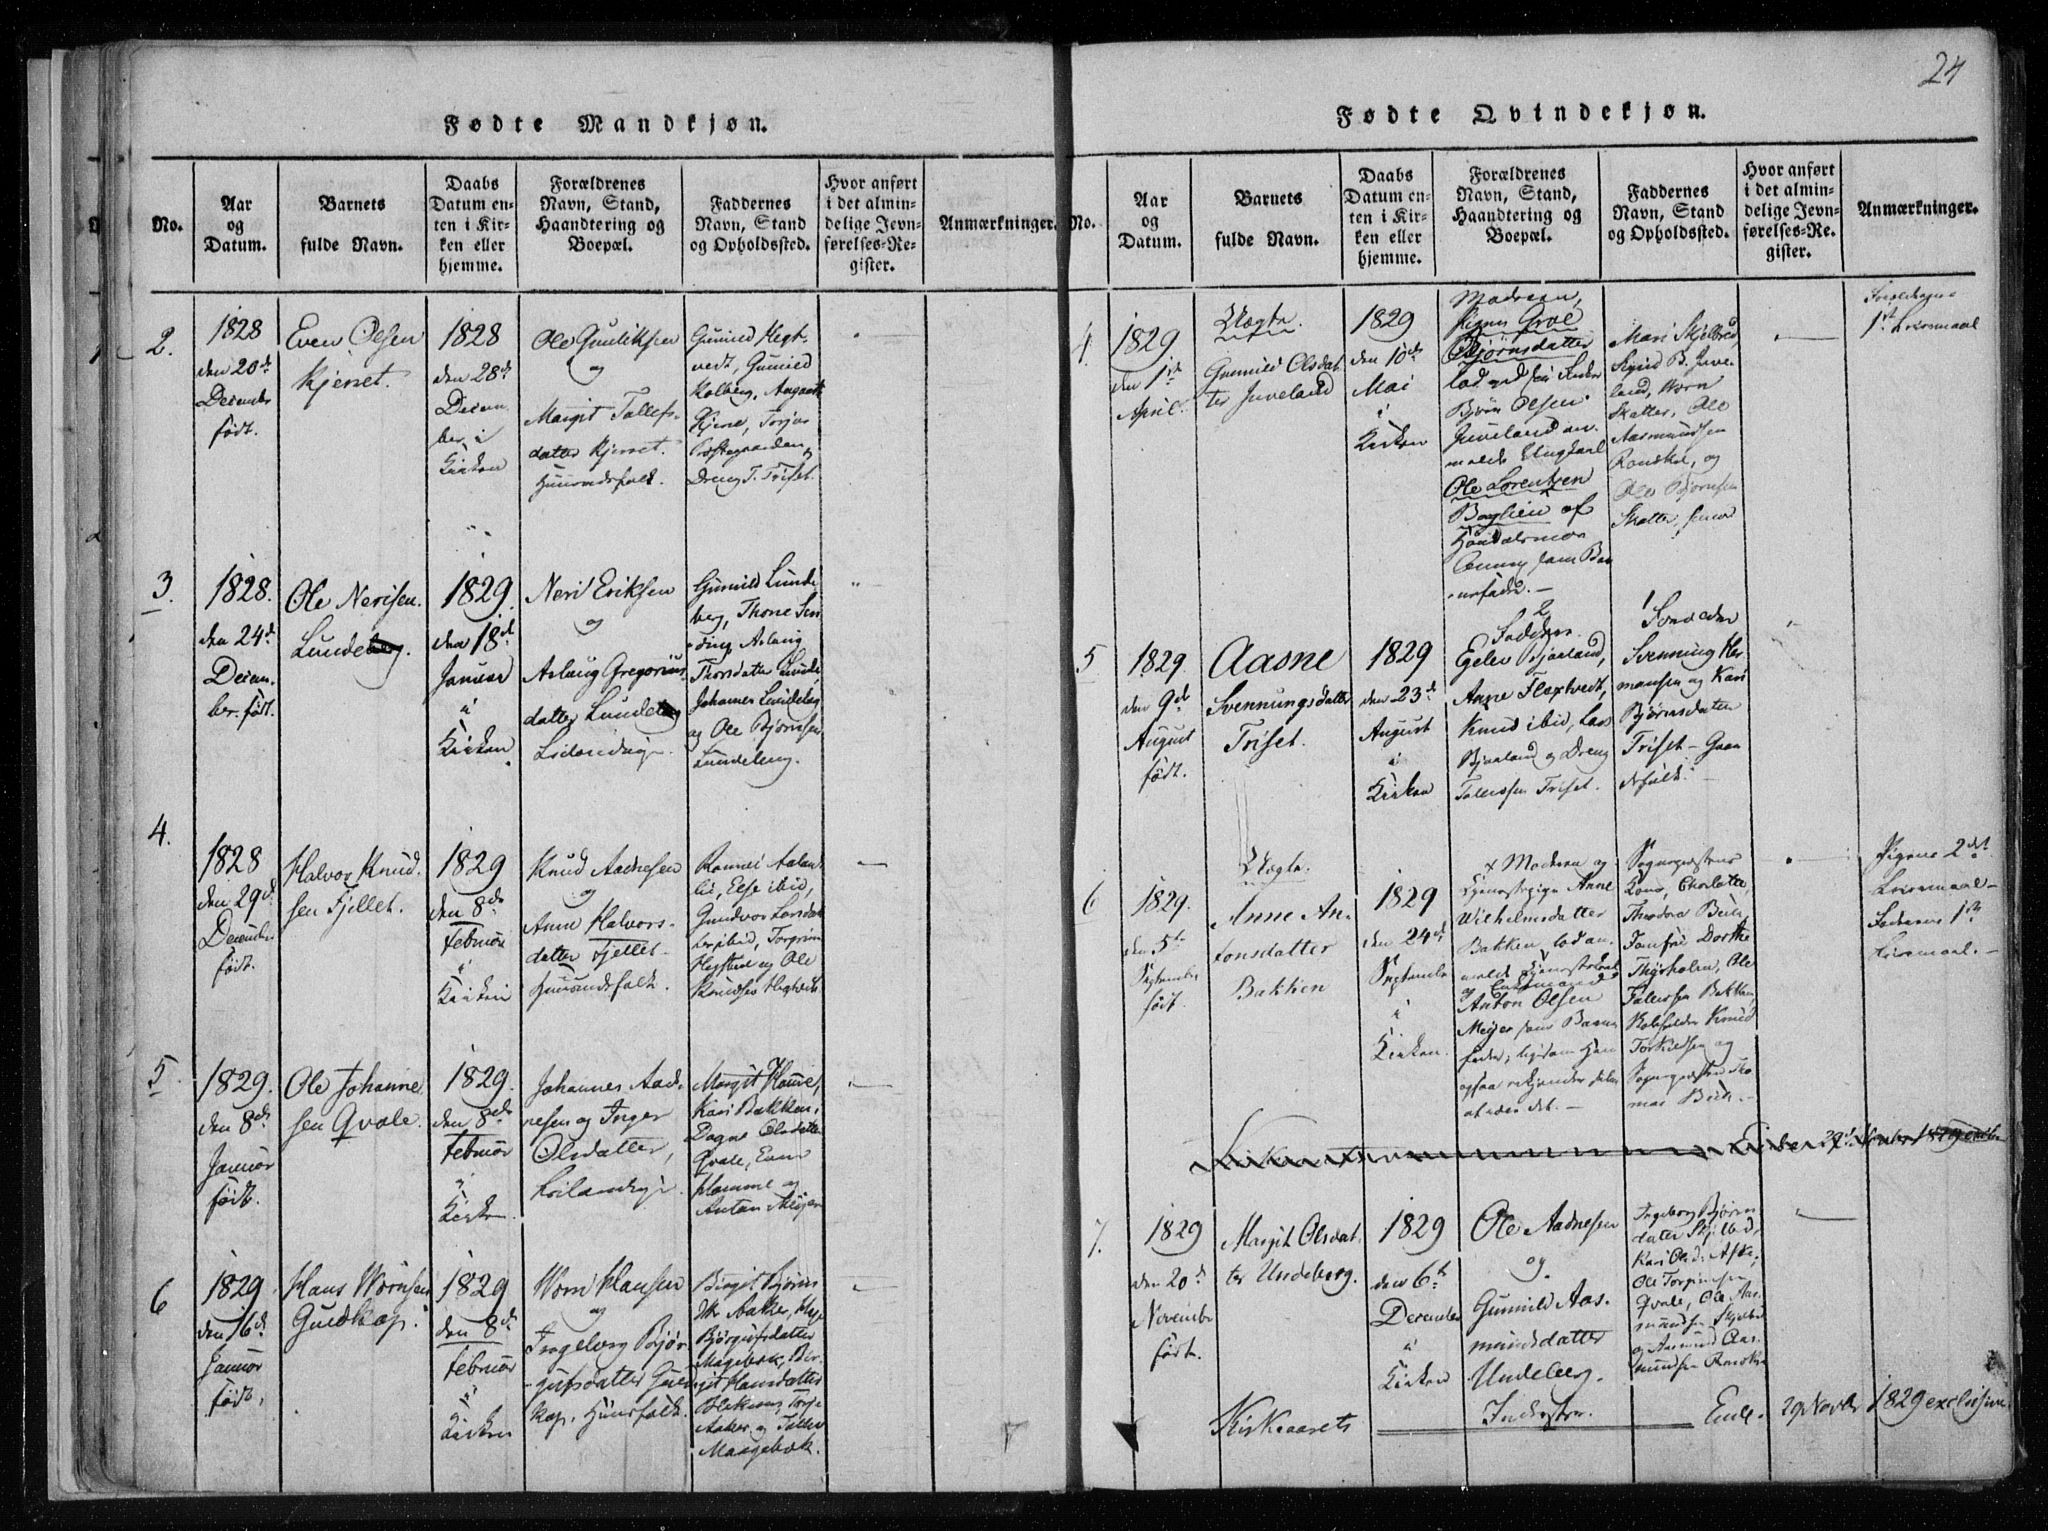 24
Fødte Mandkjøn.
No.
Aar
og
Datum.
Barnets
fulde Navn.
Daabs
Datum en-
ten i Kir-
ken eller
hjemme.
Forældrenes
Navn, Stand,
Haandtering og
Boepæl.
Faddernes
Navn, Stand
og Opholdssted.
Hvor anført
i det almin-
delige Jevn-
førelses-Re-
gister.
Anmærkninger.
2.
1828
den 20de
Decembr
født.
Even Olsen
Kjenet.
1828
den 28de
Decem-
ber i
Kirken
Ole Gunliksen
og
Margit Tallefs-
datter Kjenet.
Huusmandsfolk.
Gunild Hegt-
vedt, Gunild
Kolberg,
Kjene, Torjus
Præstegaarden,
Dreng T. Triset.
3.
1828.
den 24de
Decem-
ber født.
Ole Nerisen
Lundeberg.
1829.
den 18de
Januar
i
Kirken
Neri Eriksen
og
Aslaug Gregorius-
datter Lundeberg
Gunild Lunde-
berg, Thone
Aslaug
Thorsdatter Lunde,
Johannes Lundeberg
og Ole Bjørnsen
Lundeberg.
4.
1828
den 29de
Decembr
født.
Halvor Knud-
sen Fjellet.
1829
den 8de
Februar
i
Kirken
Knud Aadnesen
og
Anne Halvors-
datter Fjellet
Huusmandsfolk.
Else ibid,
Gundvor Larsdat-
ter ibid, Torgrim
og Ole
Knudsen Hegtvedt
5.
1829.
den 8de
Januar
født.
Ole Johanne-
sen Qvale.
1829.
den 8de
Februar
i
Kirken.
Johannes Aad-
nesen og Inger
Olsdatter,
Margit Homme,
Kari Bakken,
Dagne Olsdatter
Qvale, Even
Homme og
Anton Meyer
6
1829
den 16de
Januar
født.
Hans Wornsen
Guldkop.
1829
den 8de
Februar
i
Kirken
Worn Hansen
og
Ingeborg Bjør-
gufsdatter Guld-
kop, Huusfolk.
Birgit Bjørns-
dtr Aaker,
Bjørgufsdatter
Maagebæk, Bir-
git Hansdatter
Aaker og
Maagebæk.
Fødte Qvindekjøn.
No.
Aar
og
Datum.
Barnets
fulde Navn.
Daabs
Datum en-
ten i Kir-
ken eller
hjemme.
Forældrenes
Navn, Stand,
Haandtering og
Boepæl.
Faddernes
Navn, Stand
og Opholdssted.
Hvor anført
i det almin-
delige Jevn-
førelses-Re-
gister.
Anmærkninger.
4.
1829
den 1ste
April.
Uægte.
Gunnild Olsdat-
ter Juveland
1829
den 10de
Mai
i
Kirken
Moderen,
Pigen Groe
Bjørnsdatter
lod ved sin Fader
Bjørn Olsen
Juveland an-
melde Ungkarl
Ole Lorentzen
Baglien af
som Bar-
nefader.
Mari Skjelbred,
Sigrid B. Juve-
land, Worn
Skatter, Ole
Aasmundsen
Ramskei, og
Ole Bjørnsen
Skatter
1st Leiermaal
5
1829.
den 9de
August
født.
Aasne
Svennungsdatter
Triset.
1829
den 23de
August
i
Kirken
2
Faddere.
Egelev Bjaaland,
Anne Flaxtvedt,
Knud ibid, Lars
Bjaaland og Dreng
Tallefsen Triset.
1
Forældre
Svennung Her-
mansen og Kari
Bjørnsdatter
Triset - Gaar-
dfolk.
6
1829.
den 5te
Septembr
født.
Uægte.
Anne An-
tonsdatter
Bakken
1829
den 24de
Septembr
i
Kirken.
x Moderen og
Tjenestepige Anne
Wilhelmsdatter
Bakken lod an-
melde Tjenestekarl
og Enkemand
Anton Olsen
Meyer som Barne-
fader, ligesom han
ogsaa erkjender selv
at være det.
Sognepræstens
Kone, Charlotte
Theodora Buch,
Jomfru Dorthe
Thyrholm, Ole
Tallefsen Bakken,
Kirkesanger Knud
Torkildsen og
Sognepræsten Tho-
mas Buch.
Pigens 2det
Leiermaal
Faderens 1ste
Leiermaal.
7.
1829
den 20de
Novembr
født.
Margit Olsdat-
ter Undeberg.
1829
den 6te
December
i
Kirken
Ole Aadnesen
og
Gunnild Aas-
mundsdatter
Undeberg.
Inderster.
Ingeborg Bjørns-
datter Skjelbred,
Kari Olsd. Aske,
Ole Torgrimsen
Qvale, Ole Aas-
mundsen Skjelbred
og Aasmund Aas-
mundsen Ramske
Kirkeaarets Ende. 29 Novbr 1829 exclusive